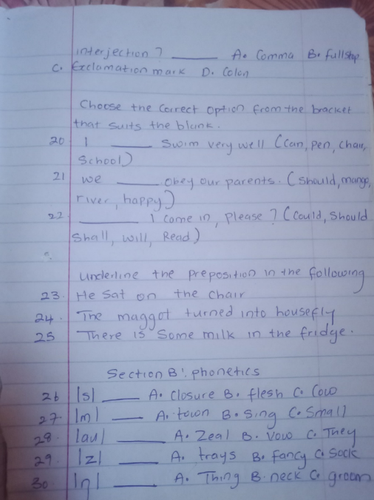 interjection? ______ A. Comma B. Fullstop
C. Exclamation mark D. Colon
Choose the Correct option from the bracket
that suits the blank.
20 I ______ Swim very well (Can, pen, Chair,
School)
21 We ______ obey our parents. (Should, mango,
river, happy)
22 ______ I come in, please? (Could, Should
Shall, will, Read)
Underline the preposition in the following
23. He Sat on the chair
24. The maggot turned into housefly
25 There is Some milk in the fridge.
Section B: phonetics
26 |s| ______ A. closure B. flesh C. Cow
27 |m| ______ A. town B. Sing C. Small
28. |au| ______ A. Zeal B. Vow C. They
29. |z| ______ A. trays B. fancy C. Sock
30. |η| ______ A. Thing B. neck C. groom